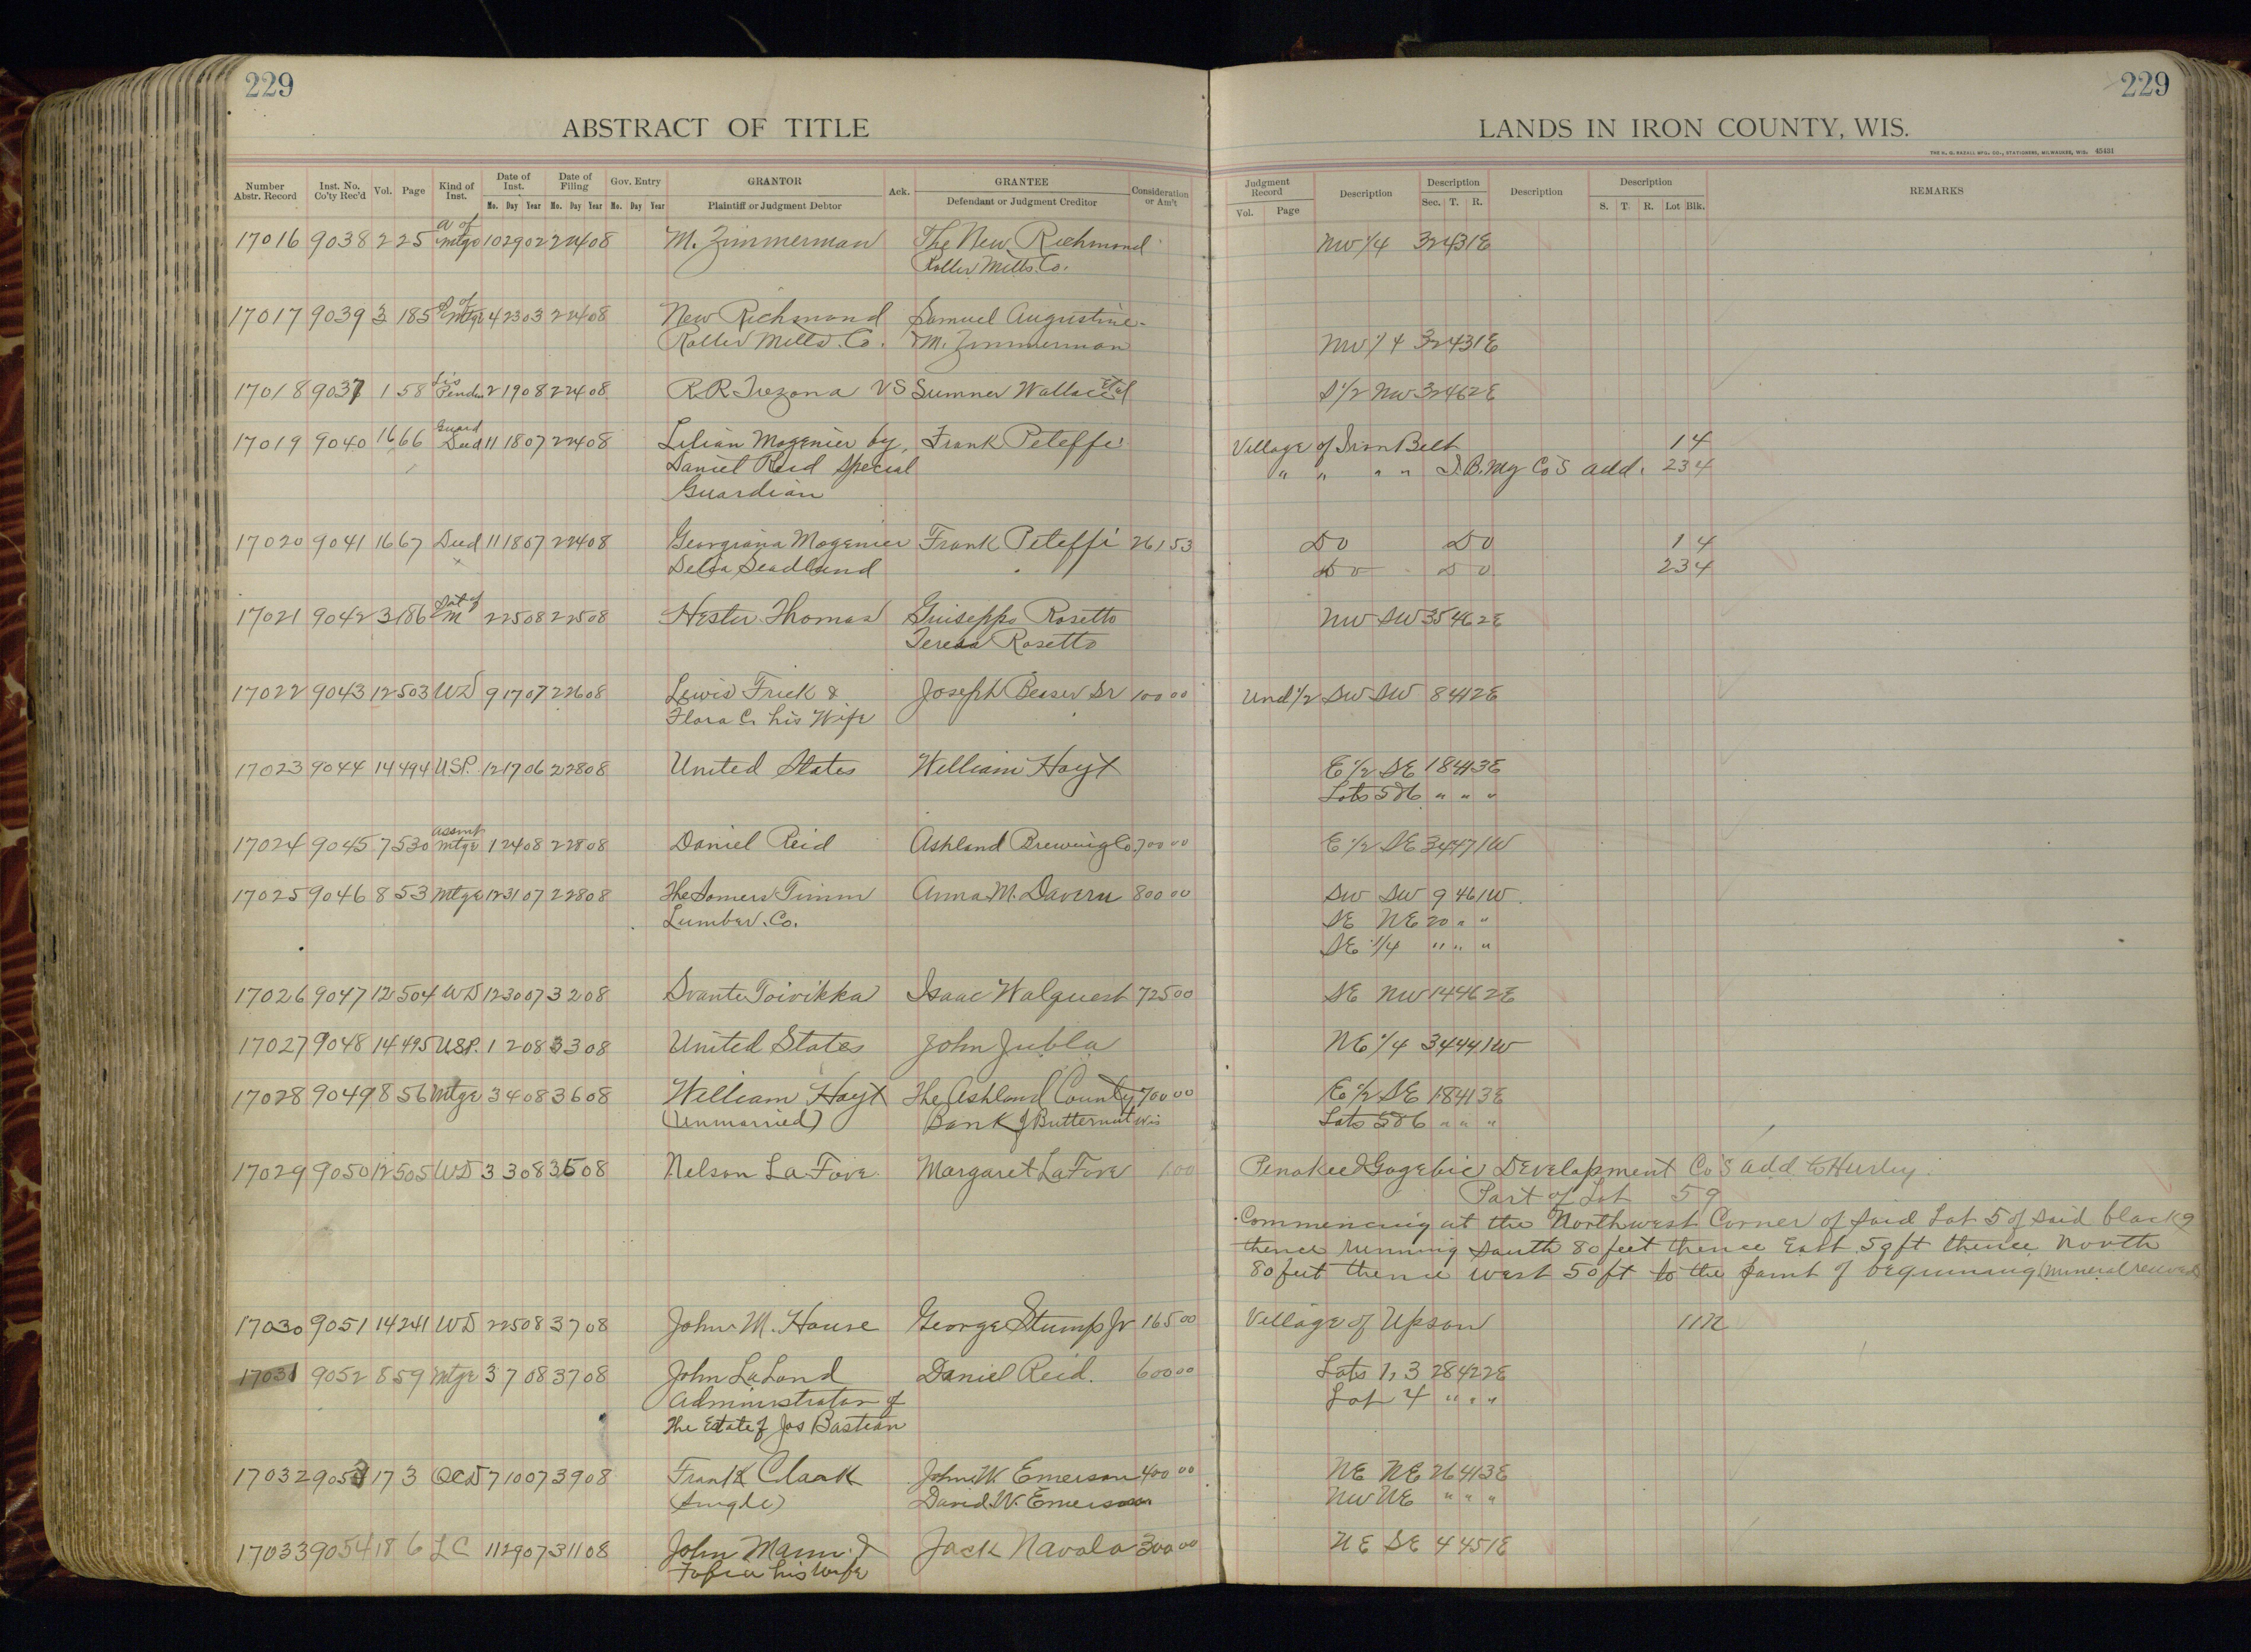 229
229
ABSTRACT OF TITLE
LANDS IN IRON COUNTY, WIS.
THE H. G. RAZALL MFG. CO., STATIONERS, MILWAUKEE, WIS. 45431
Number Abstr. Record Inst. No. Co'ty Rec'd Vol. Page Kind of Inst. Date of Inst. Mo. Day Year Date of Filing Mo. Day Year Gov. Entry Mo. Day Year GRANTOR Plaintiff or Judgment Debtor Ack. GRANTEE Defendant or Judgment Creditor Consideration or Am't
Judgment Record Vol. Page Description Description Sec. T. R. Description Description S. T. R. Lot Blk. REMARKS
17016 9038 2 25 A of Mtge 10 29 02 2 24 08 M. Zimmerman The New Richmond NW 1/4 32 43 1E
Roller Mills Co.
17017 9039 3 185 Mtge 4 23 03 2 24 08 New Richmond Samuel Augustine
Roller Mills Co. M. Zimmerman NW 1/4 32 43 1E
17018 9037 1 58 Lis Penden 2 19 08 2 24 08 R.R. Trezona VS Sumner Wallace Etal S 1/2 NW 32 46 2E
17019 9040 16 66 Guard Deed 11 18 07 2 24 08 Lilian Mogenier by Frank Peteffi Village of Iron Belt 1 4
Daniel Reid Special " " " " I.B. Mg Co's add. 23 4
Guardian
17020 9041 16 67 Deed 11 18 07 2 24 08 Georgiana Mogenier Frank Peteffi 261 53 Do Do 1 4
Delia Do Do 23 4
17021 9042 3 186 Sat of M 2 25 08 2 25 08 Hester Thomas Guiseppo Rosetto NW SW 35 46 2E
Teresa Rosetto
17022 9043 12 503 WD 9 17 07 2 26 08 Lewis Frick & Joseph Beaser Sr 100 00 Und 1/2 SW SW 8 41 2E
Flora C. his Wife
17023 9044 14 494 USP. 12 17 06 2 28 08 United States William Hoyt E 1/2 SE 18 41 3E
Lots 5&6 " " "
17024 9045 7 530 Assmt Mtge 1 24 08 2 28 08 Daniel Reid Ashland Brewing Co. 700 00 E 1/2 SE 34 47 1W
17025 9046 8 53 Mtge 12 31 07 2 28 08 The Somers Timm Anna M. Davern 800 00 SW SW 9 46 1W
Lumber Co. SE NE 20 " "
SE 1/4 " " "
17026 9047 12 504 WD 12 30 07 3 2 08 Svante Toivikka Isaac Walquest 725 00 SE NW 14 46 2E
17027 9048 14 495 USP. 1 2 08 3 3 08 United States John Jubla NE 1/4 34 44 1W
17028 9049 8 56 Mtge 3 4 08 3 6 08 William Hoyt The Ashland County 700 00 E 1/2 SE 18 41 3E
(Unmarried) Bank of Butternut Wis Lots 5&6 " " "
17029 9050 12 505 WD 3 3 08 3 08 Nelson La Fove Margaret La Fove 1 00 Penokee & Gogebic Development Co's add to Hurley
Part of Lot 5 9
Commencing at the Northwest Corner of said Lot 5 of said block 9
thence running South 80 feet thence East 50 ft thence North
80 feet thence west 50 ft to the point of beginning (mineral reserved)
17030 9051 14 241 WD 2 25 08 3 7 08 John M. House George Stump Jr 165 00 Village of Upson 11 12
17031 9052 8 59 Mtge 3 7 08 3 7 08 John LaLond Daniel Reid. 600 00 Lots 1, 3 28 42 2E
Administrator of Lot 4 " " "
the Estate of Jos Bastian
17032 9053 17 3 QCD 7 10 07 3 9 08 Frank Clark John W Emerson 400 00 NE NE 26 41 3E
(Single) David W. Emerson NW NE " " "
17033 9054 18 6 LC 11 29 07 3 11 08 John Mann & Jack Navala 300 00 NE SE 4 45 1E
his Wife